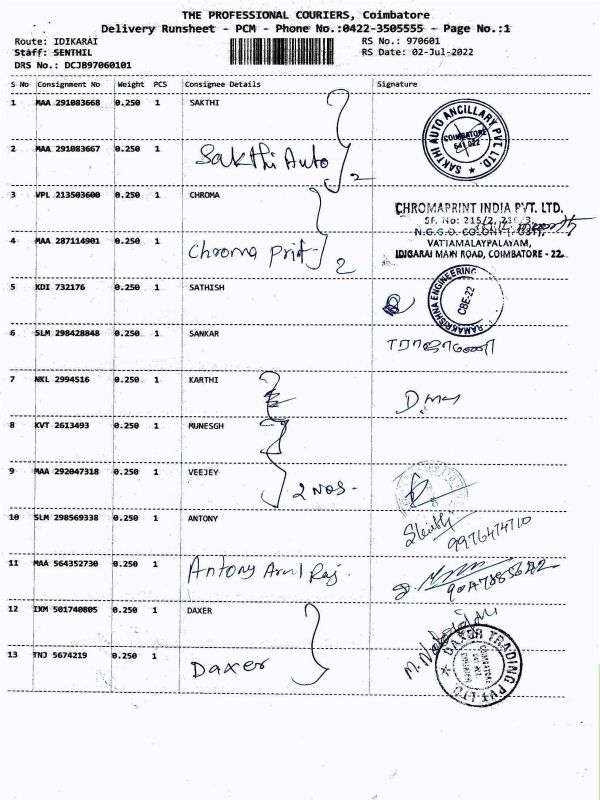 THE PROFESSIONAL COURIERS, Coimbatore
Delivery Runsheet - PCM - Phone No.:0422-3505555 - Page No.:1
Route: IDIKARAI
RS No.: 970601
Staff: SENTHIL
RS Date: 02-Jul-2022
DRS No.: DCJB97060101
S No Consignment No Weight PCS Consignee Details Signature
1 MAA 291083668 0.250 1 SAKTHI
SAKTHI AUTO ANCILLARY PVT LTD. COIMBATORE 641 022
2 MAA 291083667 0.250 1 Sakthi Auto 2
3 VPL 213503600 0.250 1 CHROMA
CHROMAPRINT INDIA PVT. LTD.
SF. No: 215/2, 216/3
N.G.G.O. COLONY (POST),
VATTAMALAYPALAYAM,
IDIGARAI MAIN ROAD, COIMBATORE - 22.
4 MAA 287114901 0.250 1 Chroma Print 2
5 KDI 732176 0.250 1 SATHISH
RAMAKRISHNA ENGINEERING CBE-22
6 SLM 298428848 0.250 1 SANKAR
7 NKL 2994516 0.250 1 KARTHI
8 KVT 2613493 0.250 1 MUNESGH
9 MAA 292047318 0.250 1 VEEJEY
2 NOS-
10 SLM 298569338 0.250 1 ANTONY
9976474710
11 MAA 564352730 0.250 1 Antony Arul Raj.
12 IXM 501740805 0.250 1 DAXER
13 TNJ 5674219 0.250 1 Daxer
DAXER TRADING PVT LTD